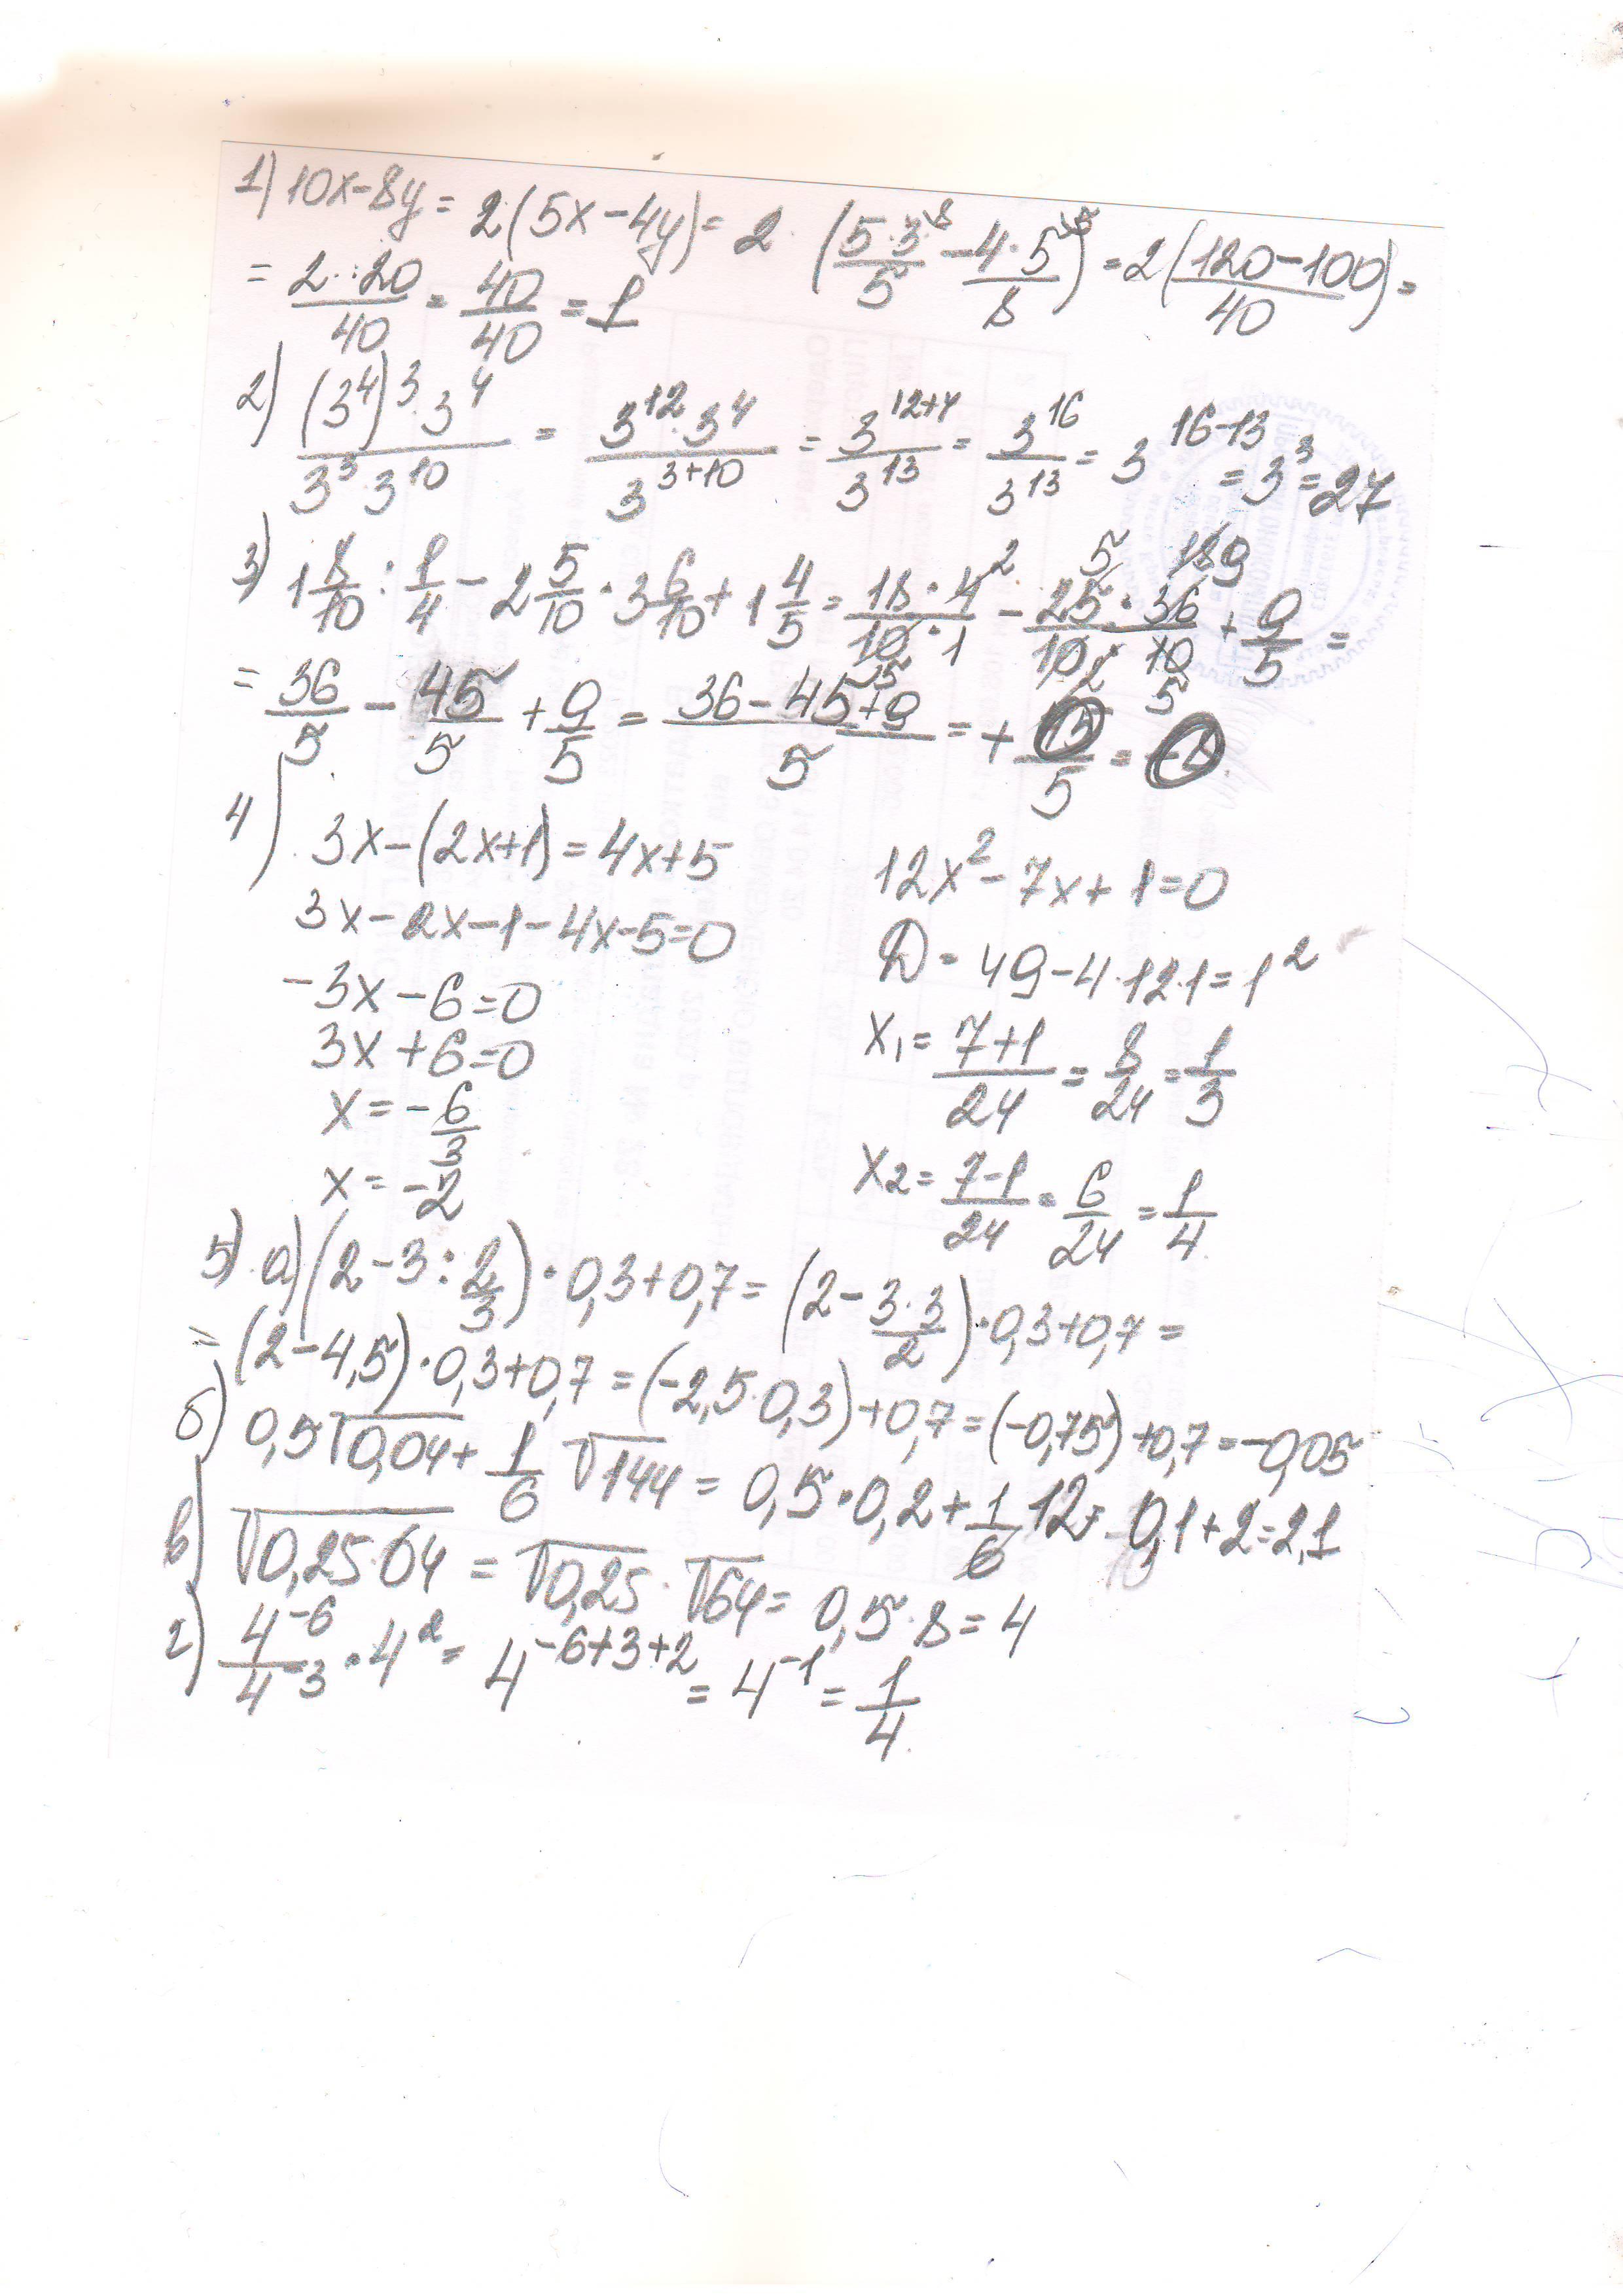 1) 10x-8y = 2(5x-4y) = 2·(5·3/5 - 4·5/8) = 2(120-100)/40 =
= 2·20/40 = 40/40 = 1
2) (3^4)^3·3^4/3^3·3^10 = 3^12·3^4/3^(3+10) = 3^(12+4)/3^13 = 3^16/3^13 = 3^(16-13) = 3^3 = 27
3) 1 8/10 : 1/4 - 2 5/10 · 3 6/10 + 1 4/5 = 18·4/10·1 - 25·36/10·10 + 9/5 =
= 36/5 - 45/5 + 9/5 = 36-45+9/5 = + 0/5 = 0
4) 3x-(2x+1)=4x+5
3x-2x-1-4x-5=0
-3x-6=0
3x+6=0
x=-6/3
x=-2
12x²-7x+1=0
D=49-4·12·1=1²
x₁=7+1/24=8/24=1/3
x₂=7-1/24=6/24=1/4
5) а) (2-3:2/3)·0,3+0,7=(2-3·3/2)·0,3+0,7=
=(2-4,5)·0,3+0,7=(-2,5·0,3)+0,7=(-0,75)+0,7=-0,05
б) 0,5√0,04+1/6√144=0,5·0,2+1/6·12=0,1+2=2,1
в) √0,25·64=√0,25·√64=0,5·8=4
г) 4^-6/4^-3·4^2=4^(-6+3+2)=4^-1=1/4